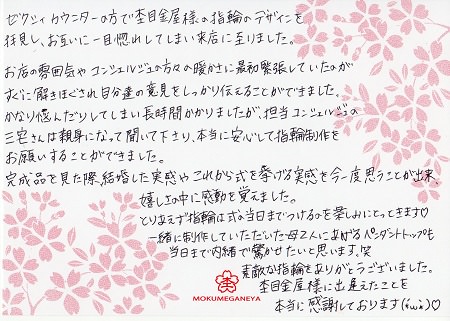 ゼクシィカウンターの方で杢目金屋様の指輪のデザインを
拝見し、お互いに一目惚れしてしまい来店に至りました。
お店の雰囲気やコンシェルジュの方々の暖かさに最初緊張していたのが
すぐに解きほぐされ自分達の意見をしっかり伝えることができました。
かなり悩んだりしてしまい長時間かかりましたが、担当コンシェルジュの
三宅さんは親身になって聞いて下さり、本当に安心して指輪制作を
お願いすることができました。
完成品を見た際、結婚した実感やこれから式を挙げる実感を今一度思うことが出来、
嬉しさの中に感動を覚えました。
とりあえず指輪は式の当日までつけるのを楽しみにとっときます♡
一緒に制作していただいた母2人にあげるペンダントトップも
当日まで内緒で驚かせたいと思います。笑
素敵な指輪をありがとうございました。
杢目金屋様に出逢えたことを
本当に感謝しております(*´ω`*)♡
MOKUMEGANEYA